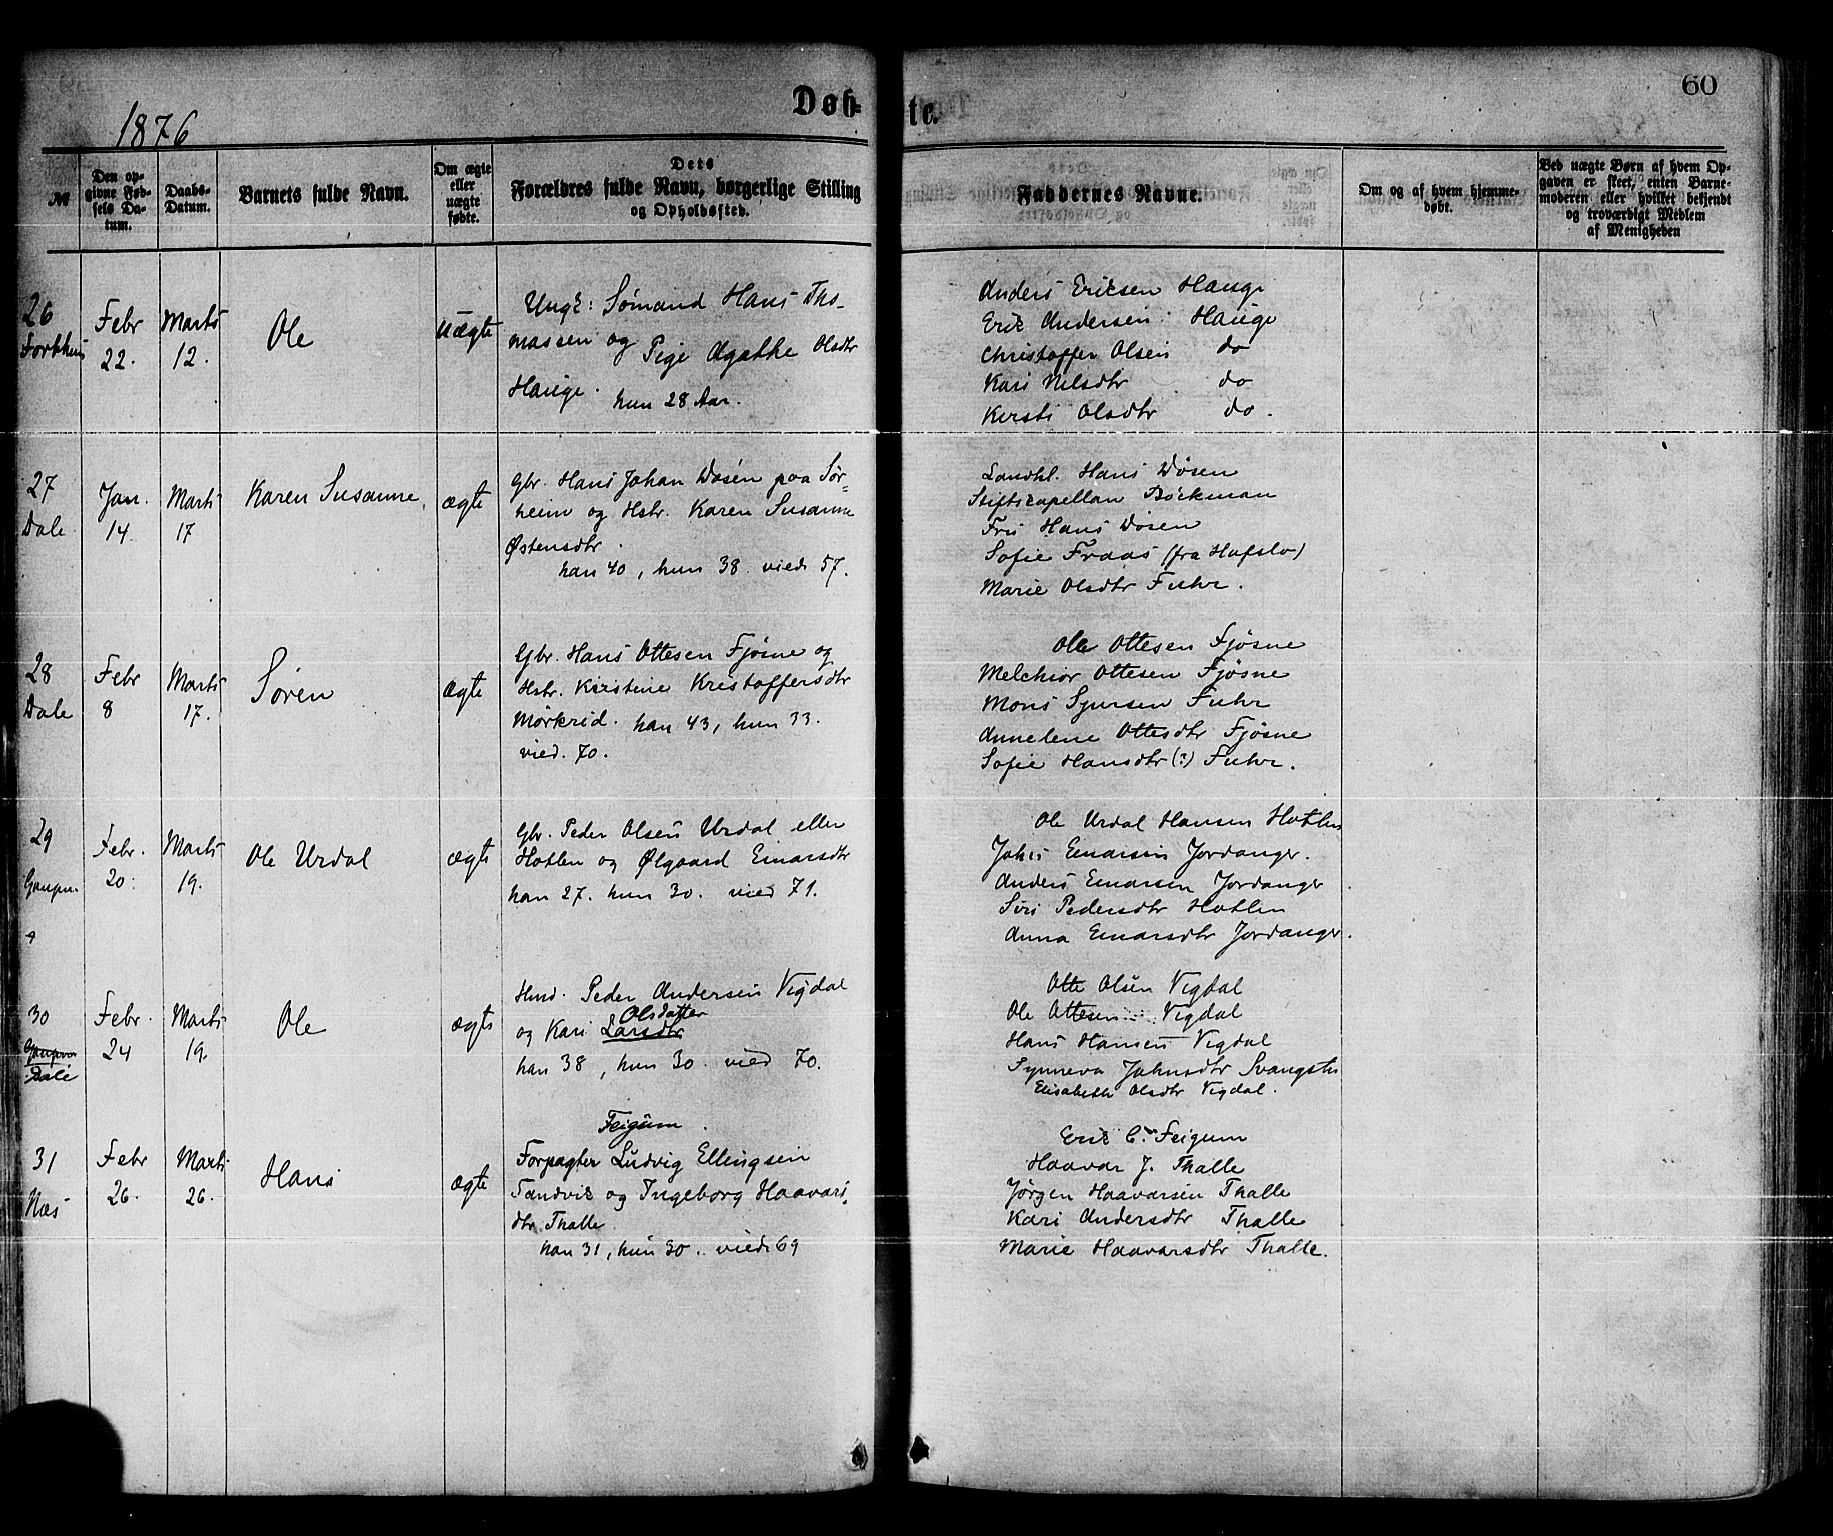 1876
Døb-
te.
60
№
Den op-
givne Fød-
sels Da-
tum.
Daabs-
Datum.
Barnets fulde Navn.
Om ægte
eller
uægte
fødte.
Dets
Forældres fulde Navn, borgerlige Stilling
og Opholdssted.
Faddernes Navne.
Om og af hvem hjemme-
døbt.
Ved uægte Børn af hvem Op-
gaven er skeet, enten Barne-
moderen eller hvilket bekjendt
og troværdigt Medlem
af Menigheden
26
Forthun
Febr
22.
Marts
12.
Ole
uægte
Ungk: Sømand Hans Tho-
massen og Pige Agathe Olsdtr
Hauge. hun 28 Aar.
Anders Ericsen Hauge
Erik Andersen Hauge
Christoffer Olsen do
Kari Nilsdtr do
Kersti Olsdtr do.
27
Dale
Jan.
14.
Marts
17
Karen Susanne
ægte
Gbr. Hans Johan Døsen paa Sør-
heim og Hstr. Karen Susanne
Østensdtr.
han 40, hun 38 viede 57.
Landhl. Hans Døsen
Stiftscapellan Böckman
Fru Hans Døsen
Sofie Fraas (fra Hafslo)
Marie Olsdtr Fuhr.
28
Dale
Febr
8
Marts
17.
Sören
ægte
Gbr. Hans Ottesen Fjøsne og
Hstr. Kirstine Kristoffersdtr
Mörkrid. han 43, hun 33.
vied. 70.
Ole Ottesen Fjösne
Melchior Ottesen Fjösne
Mons Sjursen Fuhr
Annelene Ottesdtr Fjösne
Sofie Hansdtr (?) Fuhr.
29
Gaupn.
Febr.
20.
Marts
19.
Ole Urdal
ægte
Gbr. Peder Olsen Urdal eller
Hotlen og Ølgaard Einarsdtr
han 27. hun 30. vied 71.
Ole Urdal Hansen Hotlen
Johs Einarsen Jordanger.
Anders Einarsen Jordanger
Siri Pedersdtr Hotlen
Anna Einarsdtr Jordanger.
30
Gaupne
Dale
Febr.
24
Marts
19.
Ole
ægte
Hmd. Peder Andersen Vigdal
Olsdatter
og Kari Larsdtr
han 38, hun 30. vied 70.
Otte Olsen Vigdal
Ole Ottesen Vigdal
Hans Hansen Vigdal
Synneva Johnsdtr
Elisabeth Olsdtr Vigdal.
31
Næs
Febr
26.
Marts
26.
Hans
ægte
Feigum.
Forpagter Ludvig Ellingsen
Sandvik og Ingeborg Haavars
dtr Thalle.
han 31, hun 30. viede 69
Erik C. Feigum
Haavar J. Thalle
Jörgen Haavarsen Thalle
Kari Andersdtr Thalle
Marie Haavarsdtr Thalle.